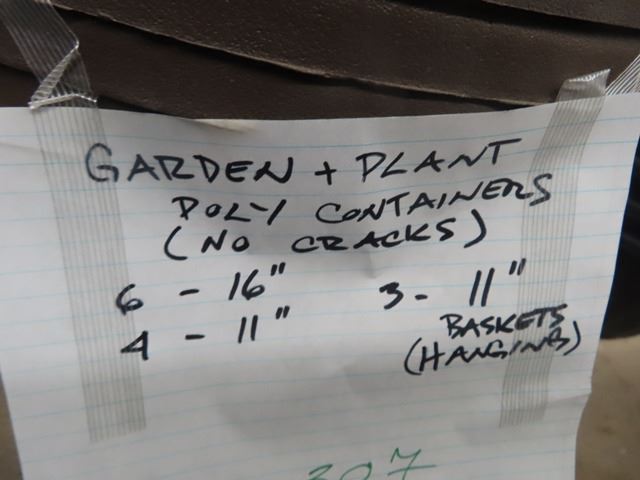 GARDEN + PLANT
POLY CONTAINERS
(NO CRACKS)
6 - 16" 3 - 11"
4 - 11" BASKETS
(HANGING)
307